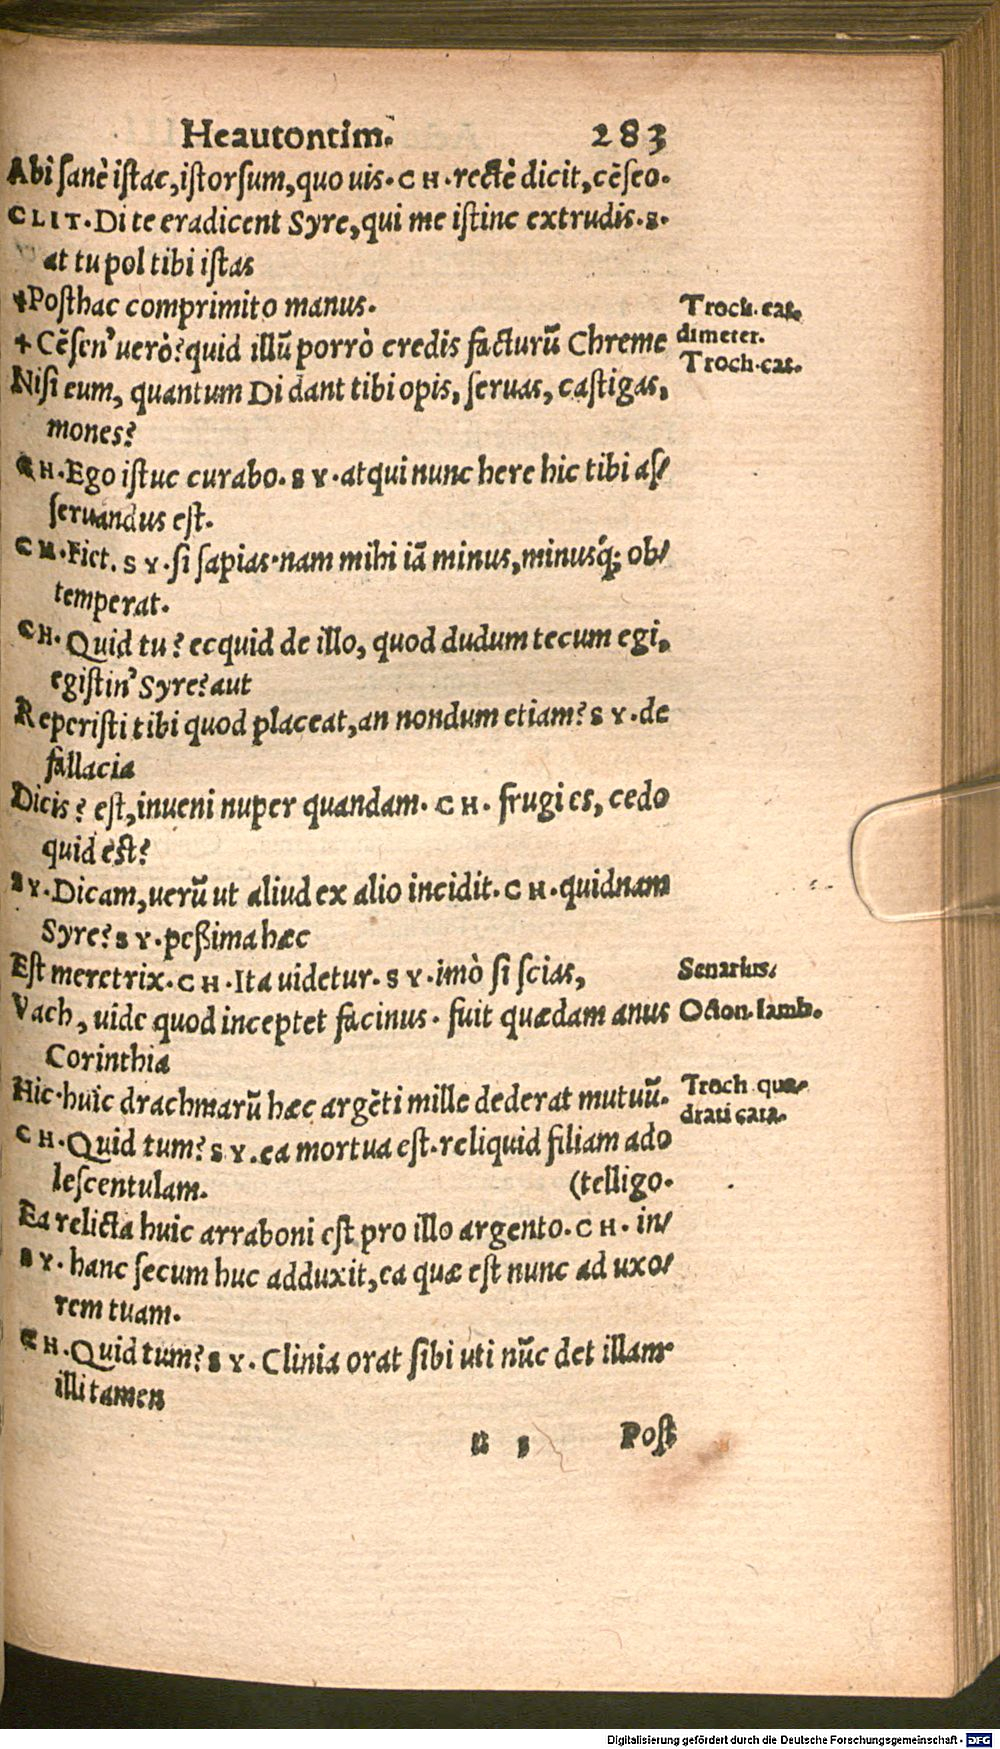 Heautontim. 283
Abi sanè istac, istorsum, quo uis. CH. rectè dicit, cẽseo.
CLIT. Di te eradicent Syre, qui me istinc extrudis. S.
at tu pol tibi istas
+Posthac comprimito manus. Troch. cat.
dimeter.
+ Cẽsen' uerò? quid illũ porrò credis facturũ Chreme
Troch. cat.
Nisi eum, quantum Di dant tibi opis, seruas, castigas,
mones?
CH. Ego istuc curabo. SY. atqui nunc here hic tibi as/
seruandus est.
CH. Fiet. SY. si sapias. nam mihi iã minus, minusq́; ob/
temperat.
CH. Quid tu? ecquid de illo, quod dudum tecum egi,
egistin' Syre? aut
Reperisti tibi quod placeat, an nondum etiam? SY. de
fallacia
Dicis? est, inueni nuper quandam. CH. frugi es, cedo
quid est?
SY. Dicam, uerũ ut aliud ex alio incidit. CH. quidnam
Syre? SY. peßima hæc
Est meretrix. CH. Ita uidetur. SY. imò si scias, Senarius.
Vach, uide quod inceptet facinus. fuit quædam anus Octon. Iamb.
Corinthia
Hic. huic drachmarũ hæc argẽti mille dederat mutuũ. Troch qua-
drati cata.
CH. Quid tum? SY. ea mortua est. reliquid filiam ado
lescentulam. (telligo.
Ea relicta huic arraboni est pro illo argento. CH. in/
SY. hanc secum huc adduxit, ea quæ est nunc ad uxo/
rem tuam.
CH. Quid tum? SY. Clinia orat sibi uti nũc det illam.
illi tamen
Post
Digitalisierung gefördert durch die Deutsche Forschungsgemeinschaft - DFG